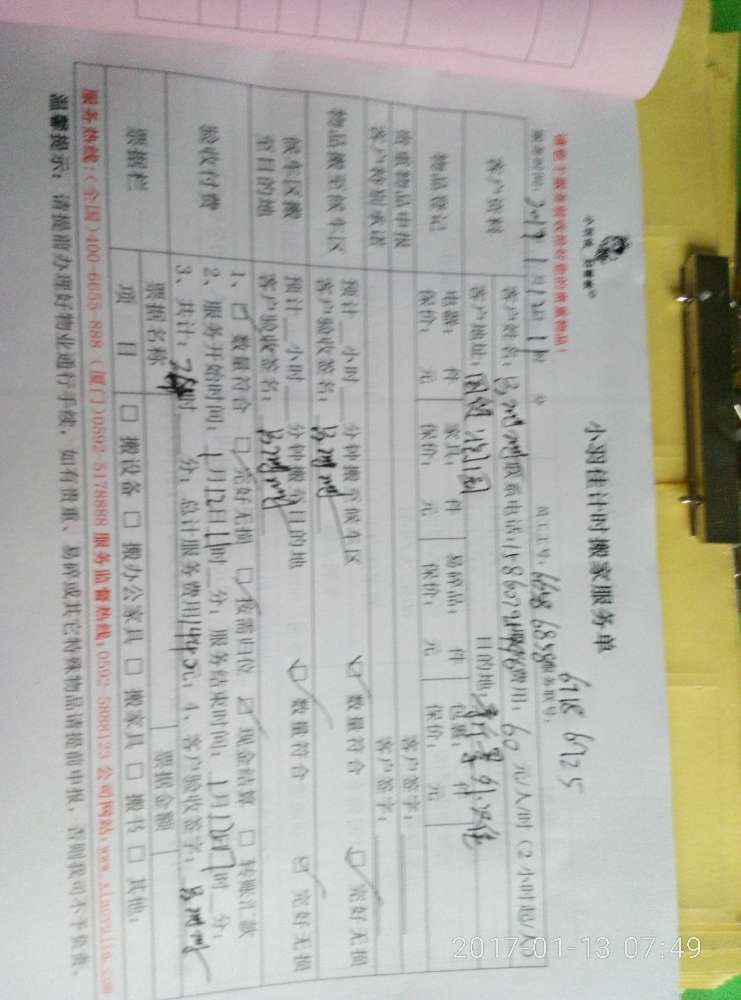 小羽佳计时搬家服务单
小羽佳
请您于服务前收拾好您的贵重物品!
服务时间: 2017 1月12日 11时 分
员工工号: 6698 6859 6718 6725
客户资料
客户姓名: 电话: 费用: 60 元/人/时 (2小时起/人)
客户地址: 目的地:
物品登记
电器: 件 家具: 件 易碎品: 件 包裹: 件
保价: 元 保价: 元 保价: 元 保价: 元
贵重物品申报 客户签字:
客户特别承诺 客户签字:
物品搬至候车区
预计 小时 分钟搬至候车区 数量符合 完好无损
客户验收签名:
候车区搬至目的地
预计 小时 分钟搬至目的地 数量符合 完好无损
客户验收签名:
验收付费
1、 数量符合 完好无损 按需归位 现金结算 转账汇款
2、服务开始时间: 1月12日11时 分; 服务结束时间: 1月12日17时 分;
3、共计: 时 分; 总计服务费用 元; 4、客户验收签字:
票据栏
票据名称 票据金额
项 目 搬设备 搬办公家具 搬家具 搬书 其他:
服务热线:(全国)400-6655-888 (厦门)0592-5178888 服务监督热线:0592-5888123 公司网站:www.xiaoyujia.com
温馨提示: 请提前办理好物业通行手续, 如有贵重、易碎或其它特殊物品请提前申报, 否则我司不予负责。
2017-01-13 07:49